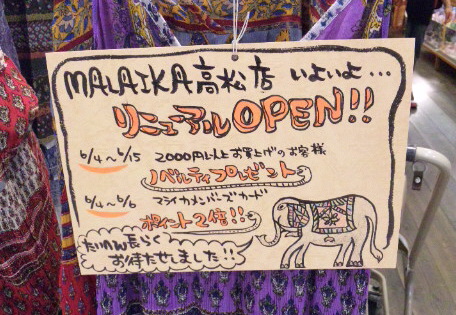 MALAIKA高松店 いよいよ…
リニューアルOPEN!!
6/4〜6/15 2000円以上お買上げのお客様
ノベルティプレゼント
6/4〜6/6 マライカメンバーズカード
ポイント2倍!!
たいへん長らく
お待たせしました!!